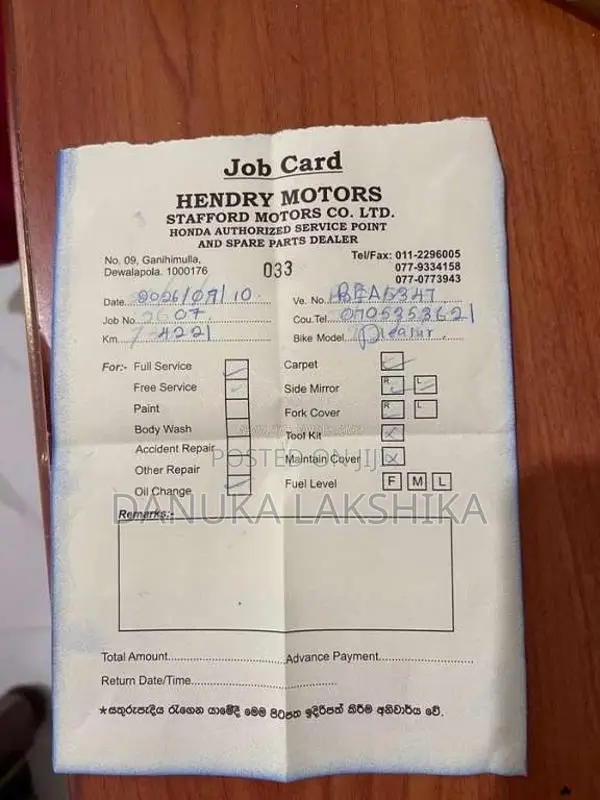 Job Card
HENDRY MOTORS
STAFFORD MOTORS CO. LTD.
HONDA AUTHORIZED SERVICE POINT
AND SPARE PARTS DEALER
No. 09, Ganihimulla,
Dewalapola. 1000176
033
Tel/Fax: 011-2296005
077-9334158
077-0773943
Date 2026/09/10
Ve. No. BEA5347
Job No 2607
Cou.Tel. 0705353621
Km 74221
Bike Model
For:- Full Service
Carpet
Free Service
Side Mirror R L
Paint
Fork Cover R L
Body Wash
Tool Kit
Accident Repair
Maintain Cover
Other Repair
Fuel Level F M L
Oil Change
POSTED ON JIJI
DANUKA LAKSHIKA
Remarks:-
Total Amount
Advance Payment
Return Date/Time
*සතුරුපැදිය රැගෙන යාමේදී මෙම පිටපත ඉදිරිපත් කිරීම අනිවාර්ය වේ.